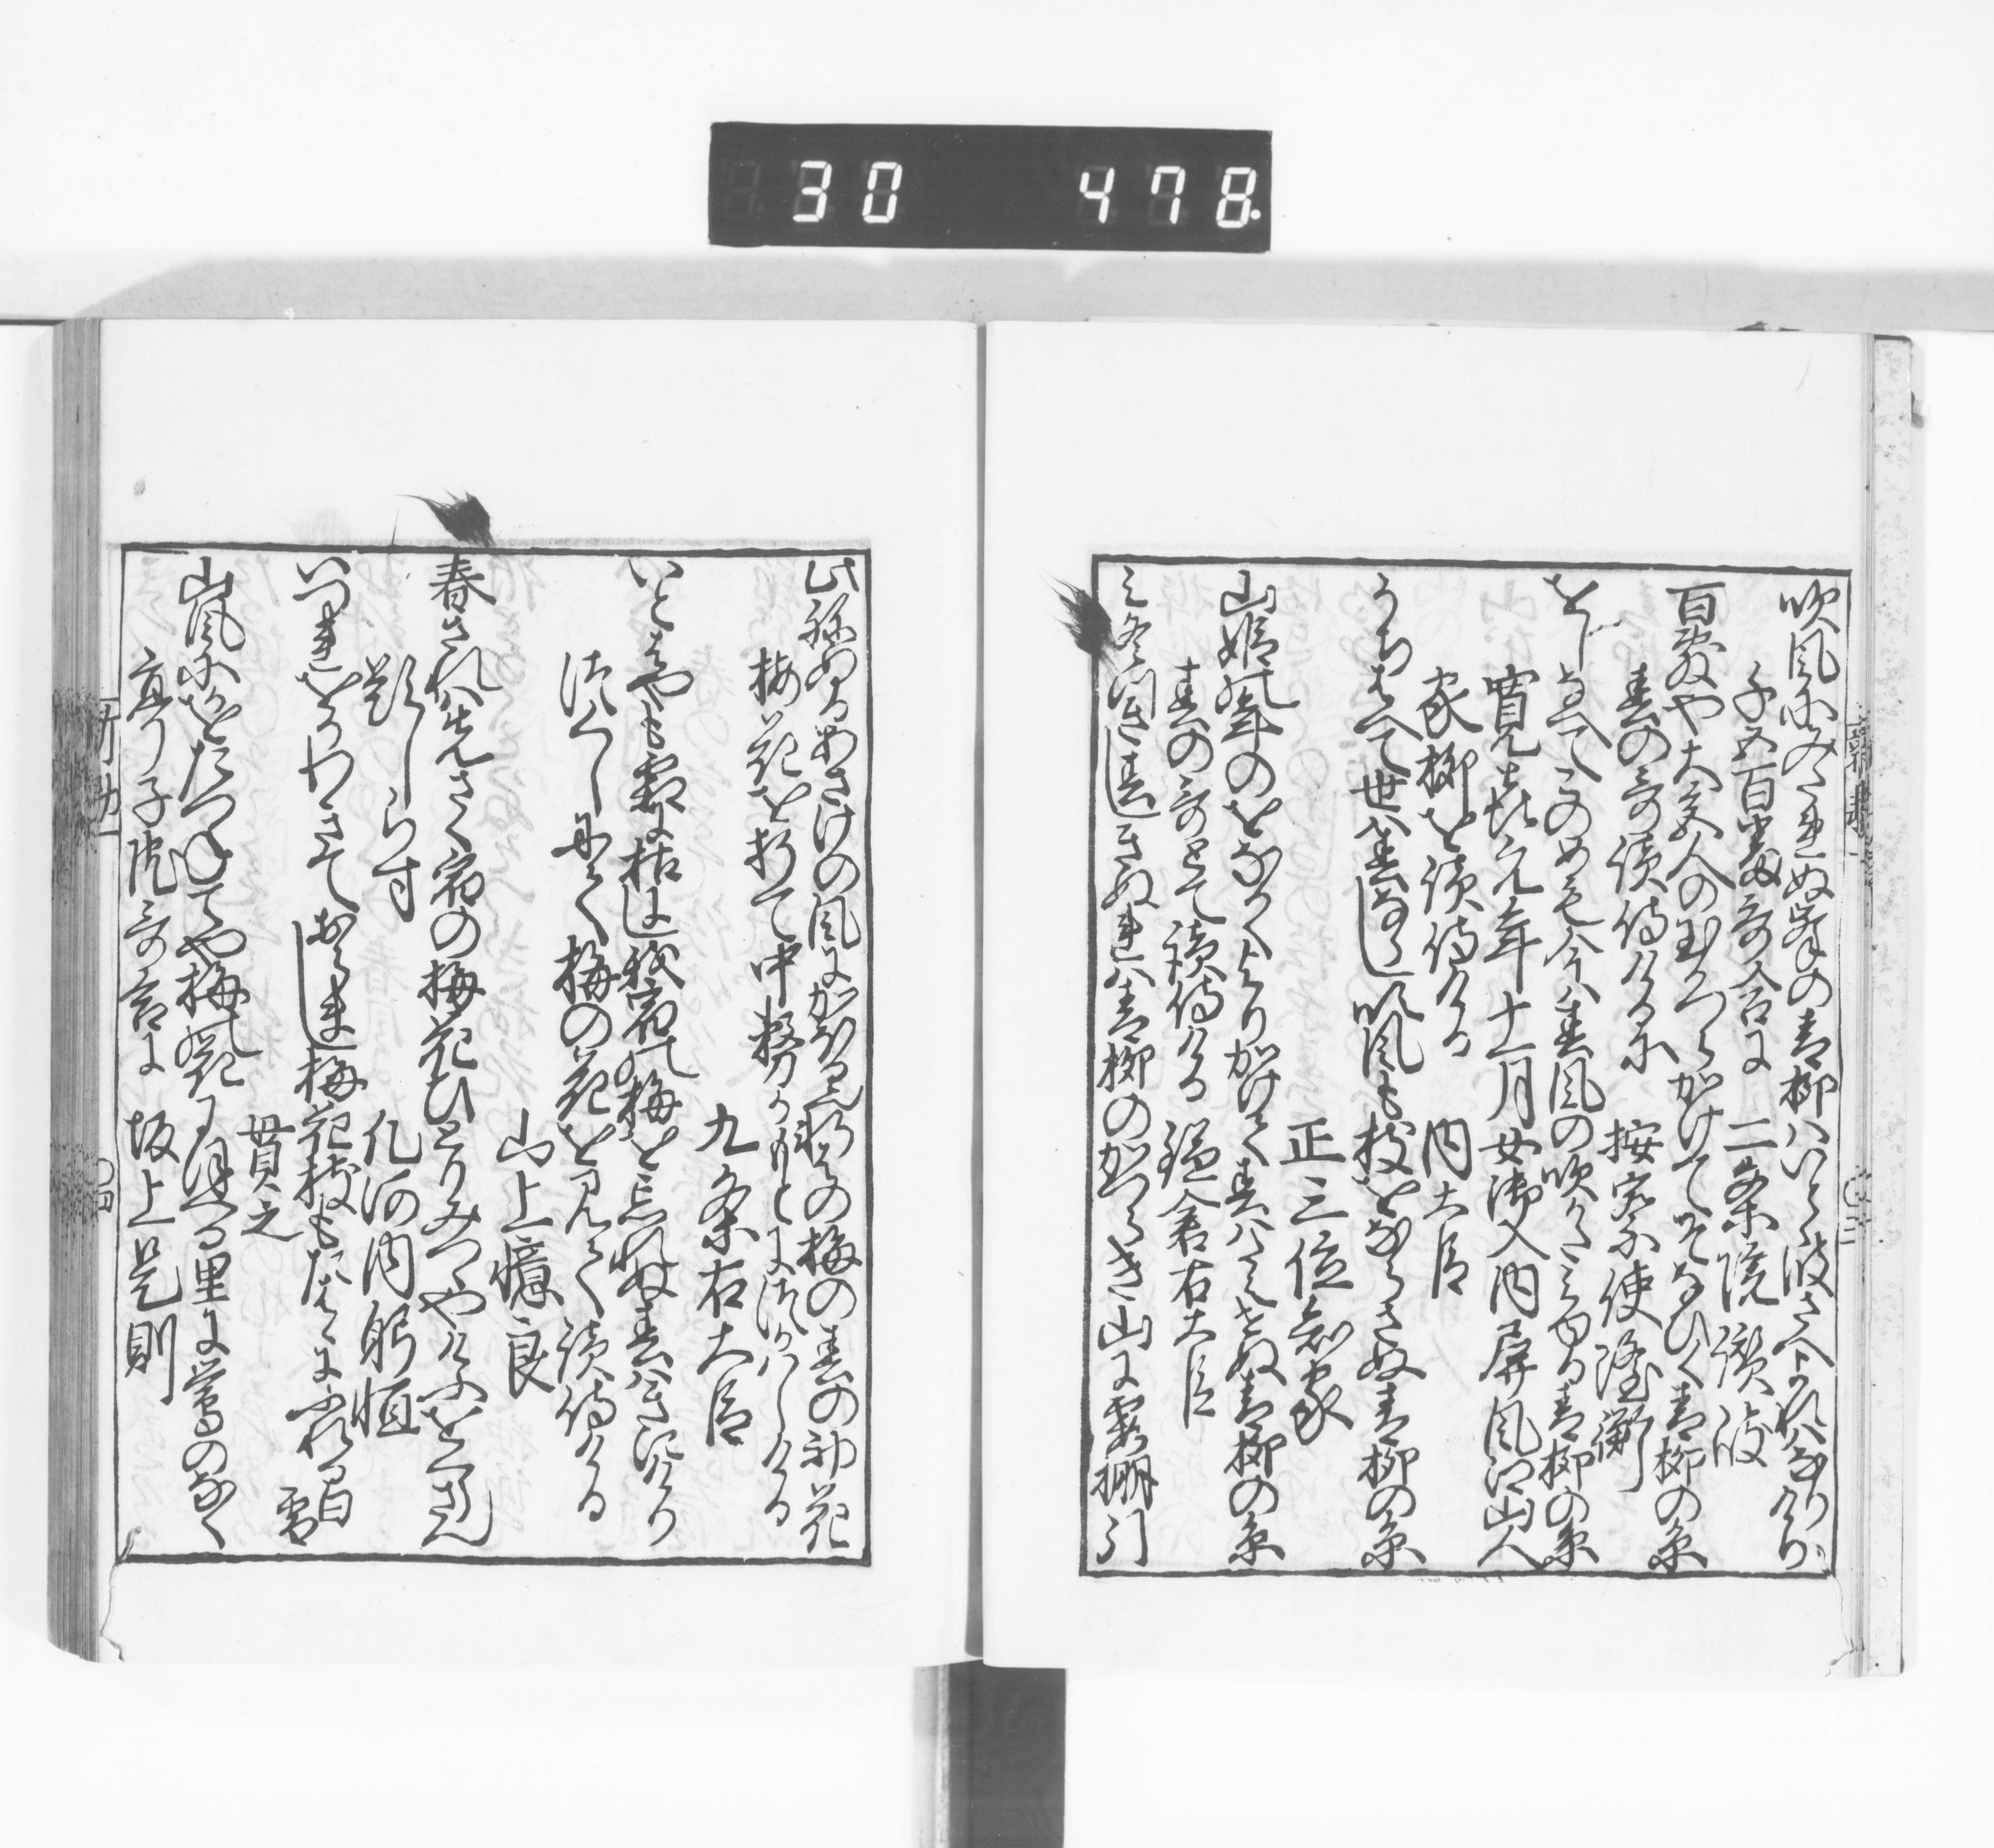 吹風にみたれぬ岸の青柳ハいとゝ波さへよれはなりけり
千五百番哥合に 二条院讃岐
百敷や大宮人の玉かつらかけてそなひく青柳の糸
春の哥読侍けるに 按察使隆衡
をしなへてこのめも今ハ春風の吹かたみゆる青柳の糸
寛喜元年十一月女御入内屏風江山人
家柳を読侍ける 内大臣
うちはへて世ハ春ならし吹風も枝をならさぬ青柳の糸
正三位知家
山姫の年のをなかくよりかけて春ハたえせぬ青柳の糸
春の哥とて読侍ける 鎌倉右大臣
み冬つき春しきぬれハ青柳のかつらき山に霞棚引
此ねぬるあさけの風にかほる也軒はの梅の春の初花
梅花を折て中務かもとにつかハしける
九条右大臣
いとはやも霜に枯にし我宿の梅を忘れぬ春ハきにけり
つくしにて梅の花を見て読侍ける
山上憶良
春されハ先さく宿の梅花ひとりみつゝやけふをくらさん
題しらす 凡河内躬恒
いつれをかわきておらまし梅花枝もたわゝにふれる白雪
貫之
山風にかをたつねてや梅花にほへる里に鶯のなく
亭子院哥合に 坂上是則
新勅一 〇四
30 478